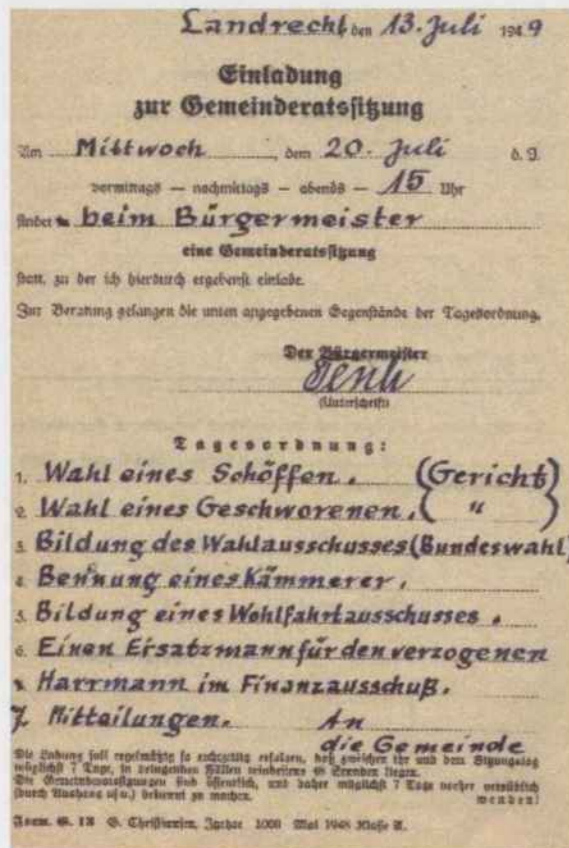 Landrecht, den 13. Juli 1949
Einladung
zur Gemeinderatssitzung
Am Mittwoch, dem 20. Juli d. J.
vormittags — nachmittags — abends — 15 Uhr
findet beim Bürgermeister
eine Gemeinderatssitzung
statt, zu der ich hierdurch ergebenst einlade.
Zur Beratung gelangen die unten angegebenen Gegenstände der Tagesordnung.
Der Bürgermeister
(Unterschrift)
Tagesordnung:
1. Wahl eines Schöffen. (Gericht)
2. Wahl eines Geschworenen. ( " )
3. Bildung des Wahlausschusses (Bundeswahl)
4. Bennung eines Kämmerer.
5. Bildung eines Wohlfahrtausschusses.
6. Einen Ersatzmann für den verzogenen
Harrmann im Finanzausschuß.
7. Mitteilungen. An
die Gemeinde
Die Ladung soll regelmäßig so rechtzeitig erfolgen, daß zwischen ihr und dem Sitzungstag
möglichst 7 Tage, in dringenden Fällen mindestens 48 Stunden liegen.
Die Gemeinderatssitzungen sind öffentlich, und daher möglichst 7 Tage vorher ortsüblich
(durch Aushang usw.) bekannt zu machen. wenden!
Form. G. 13 G. Christiansen, Itzehoe 1000 Mai 1948 Klasse A.